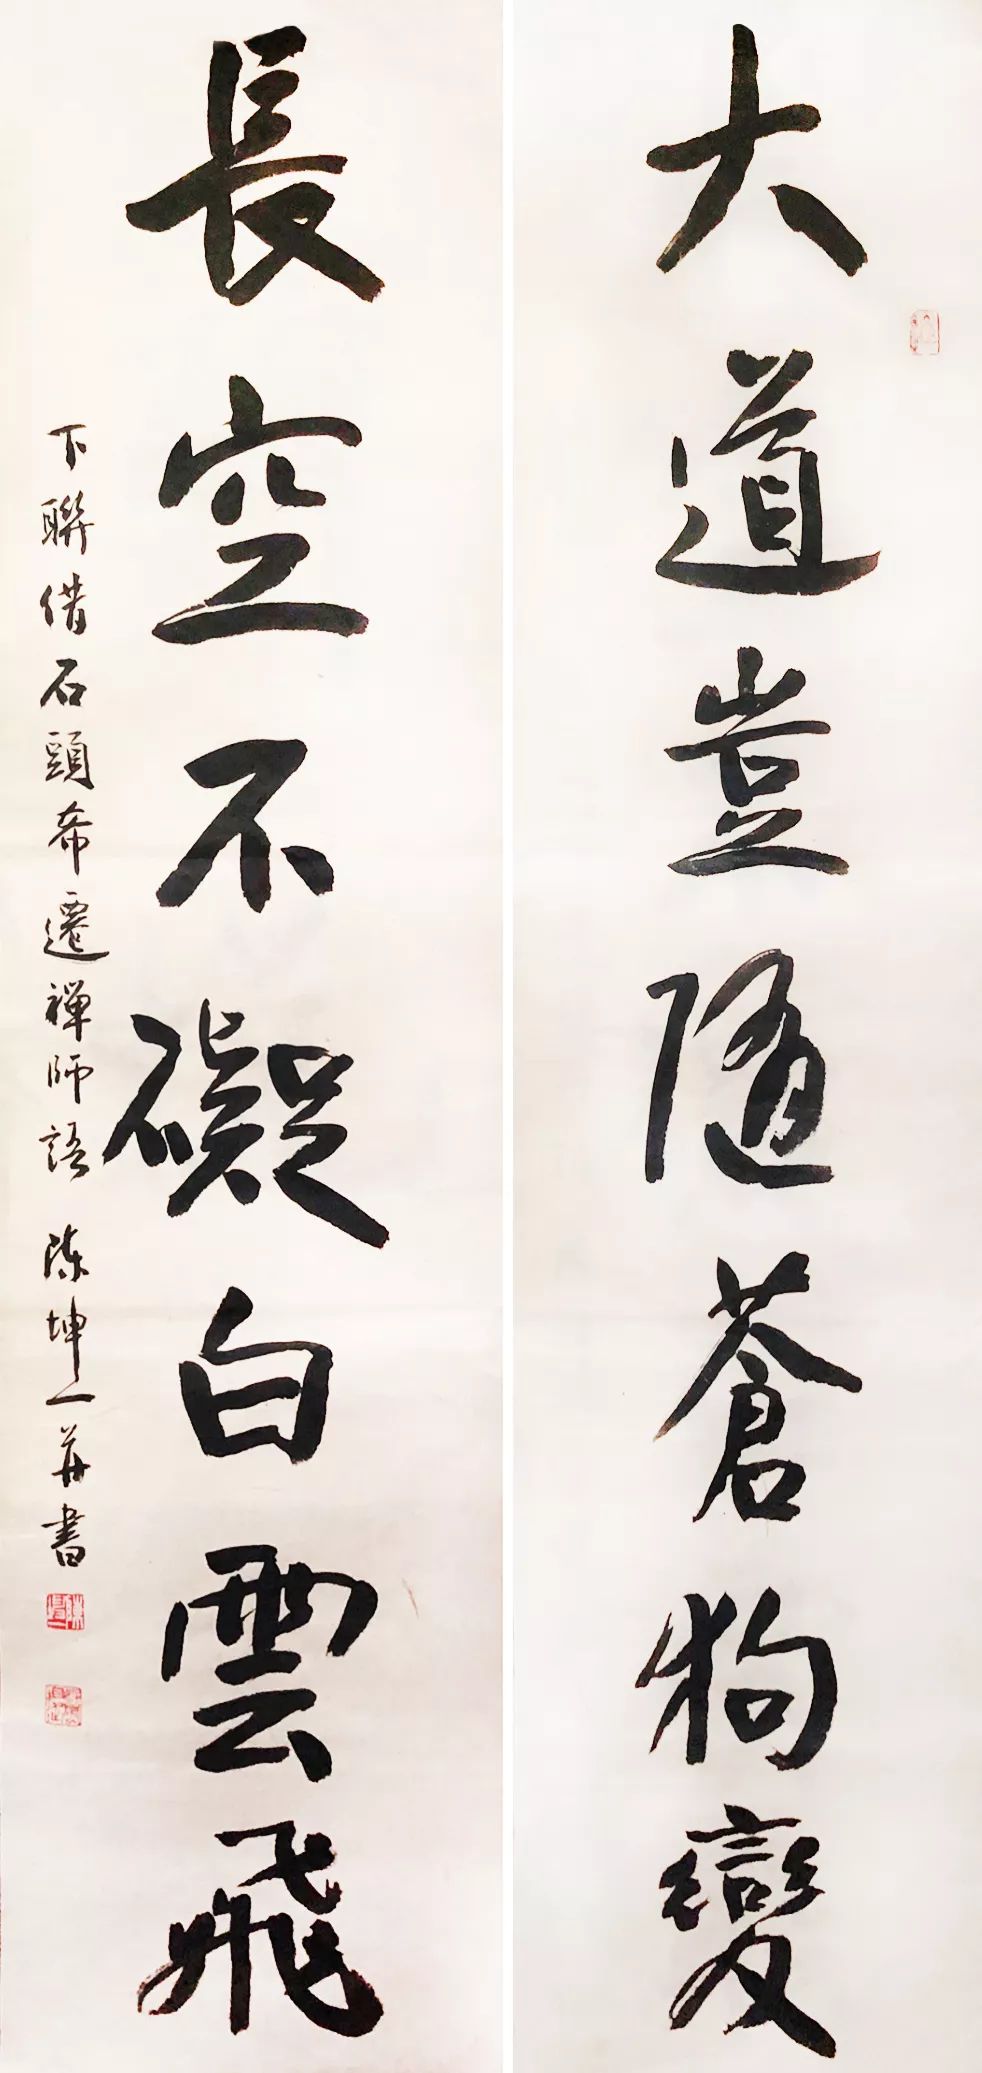 大道豈隨蒼狗變
長空不礙白雲飛
下聯借石頭希遷禪師語 陳坤一并書